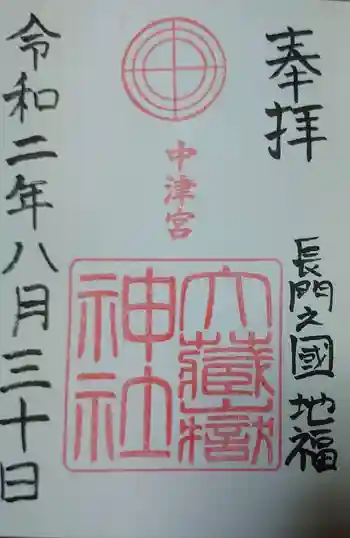 奉拝
長門之國地福
中津宮
大蔵嶽
神社
令和二年八月三十日